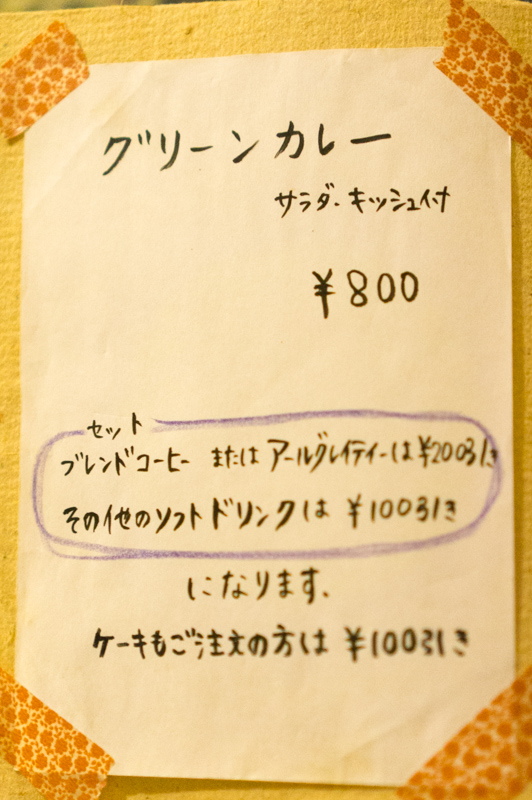 グリーンカレー
サラダ・キッシュ付
¥800
セット
ブレンドコーヒー またはアールグレイティーは¥200引き
その他のソフトドリンクは ¥100引き
になります、
ケーキもご注文の方は ¥100引き